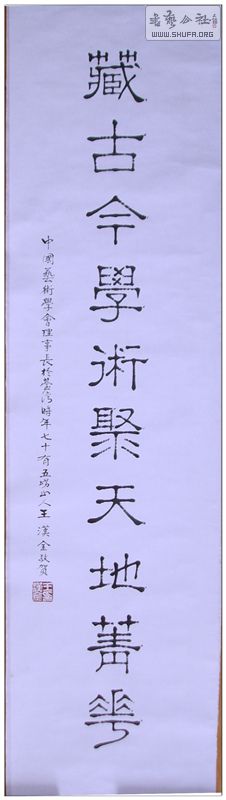 藏古今學術聚天地菁華
中國藝術學會理事長於臺灣時年七十有五嶗山人王漢金敬賀
書藝公社
WWW.SHUFA.ORG